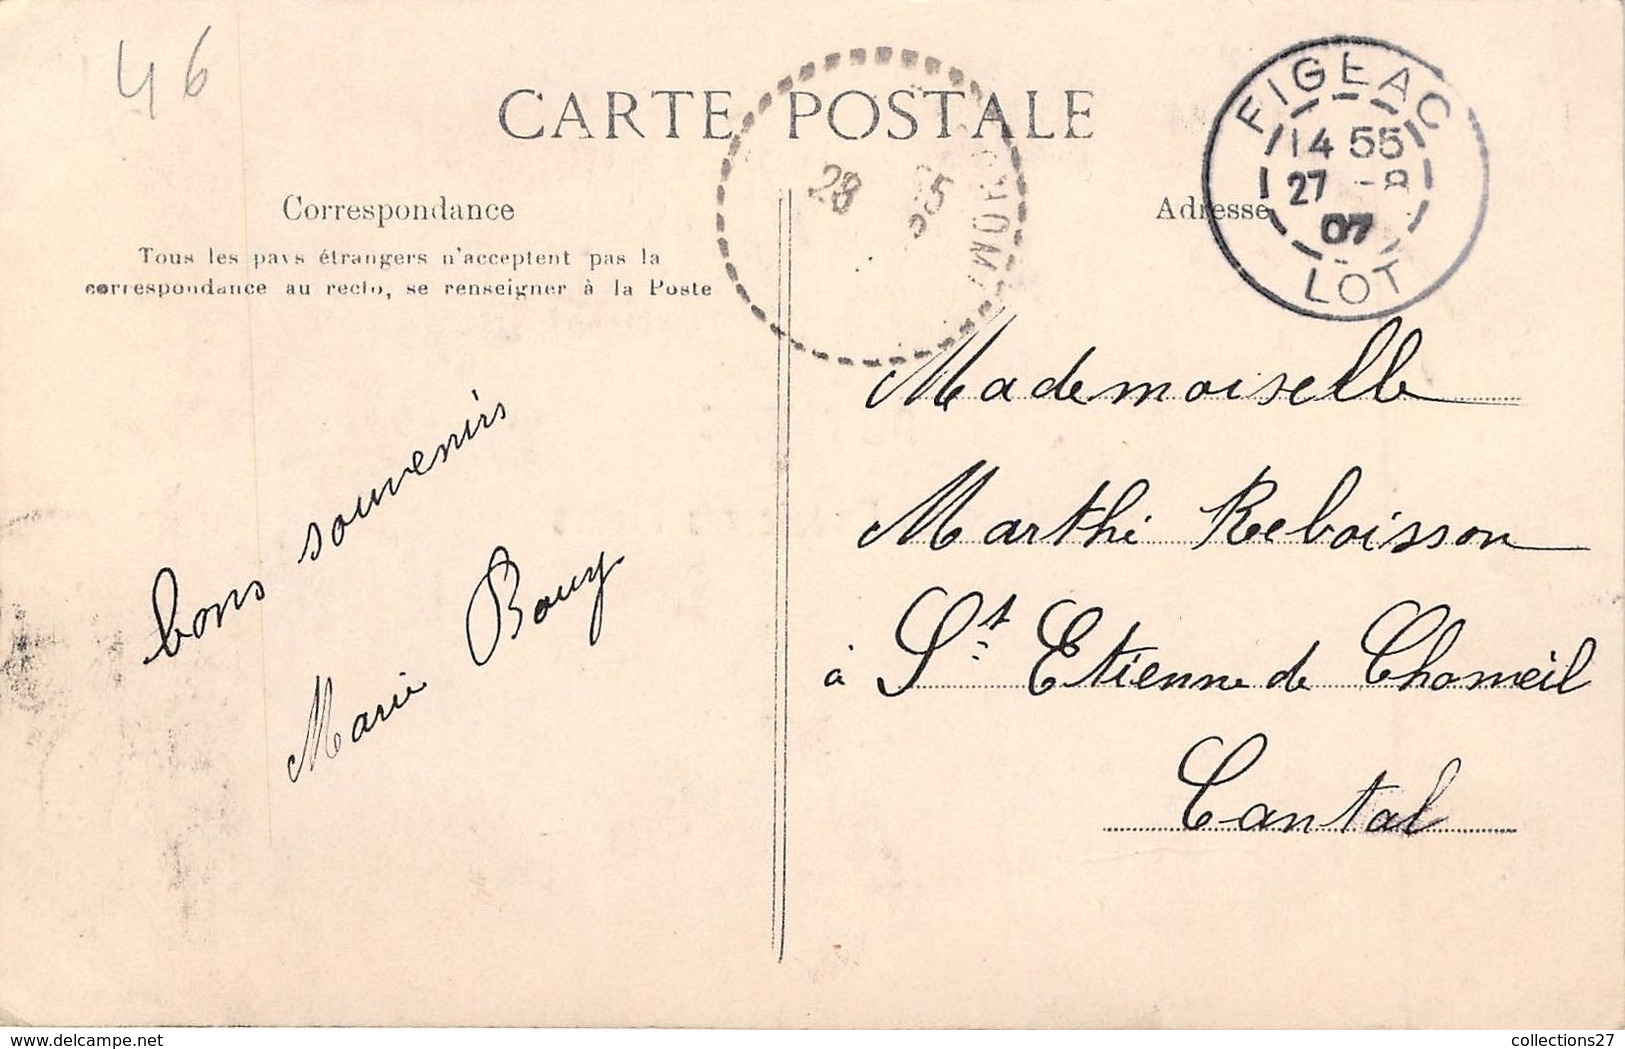 46
CARTE POSTALE
FIGEAC
14 55
27 -8
07
LOT
28
Correspondance
Adresse
Tous les pays étrangers n'acceptent pas la
correspondance au recto, se renseigner à la Poste
bons souvenirs
Marie Bouy
Mademoiselle
Marthe Reboisson
à St Etienne de Chomeil
Cantal
www.delcampe.net
collections27